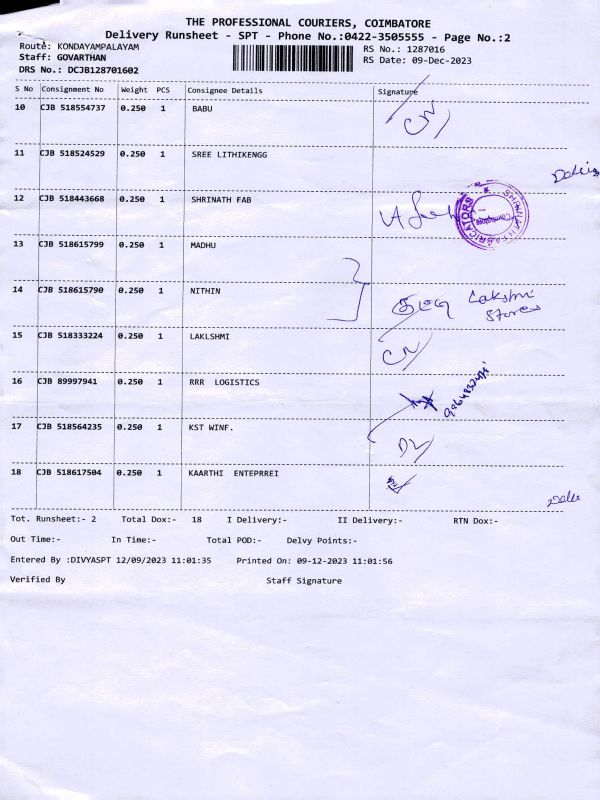 THE PROFESSIONAL COURIERS, COIMBATORE
Delivery Runsheet - SPT - Phone No.:0422-3505555 - Page No.:2
Route: KONDAYAMPALAYAM RS No.: 1287016
Staff: GOVARTHAN RS Date: 09-Dec-2023
DRS No.: DCJB128701602
S No Consignment No Weight PCS Consignee Details Signature
10 CJB 518554737 0.250 1 BABU
11 CJB 518524529 0.250 1 SREE LITHIKENGG
12 CJB 518443668 0.250 1 SHRINATH FAB
13 CJB 518615799 0.250 1 MADHU
14 CJB 518615790 0.250 1 NITHIN Lakshmi
Stores
15 CJB 518333224 0.250 1 LAKLSHMI
16 CJB 89997941 0.250 1 RRR LOGISTICS
17 CJB 518564235 0.250 1 KST WINF.
18 CJB 518617504 0.250 1 KAARTHI ENTEPRREI
Tot. Runsheet:- 2 Total Dox:- 18 I Delivery:- II Delivery:- RTN Dox:-
Out Time:- In Time:- Total POD:- Delvy Points:-
Entered By :DIVYASPT 12/09/2023 11:01:35 Printed On: 09-12-2023 11:01:56
Verified By Staff Signature